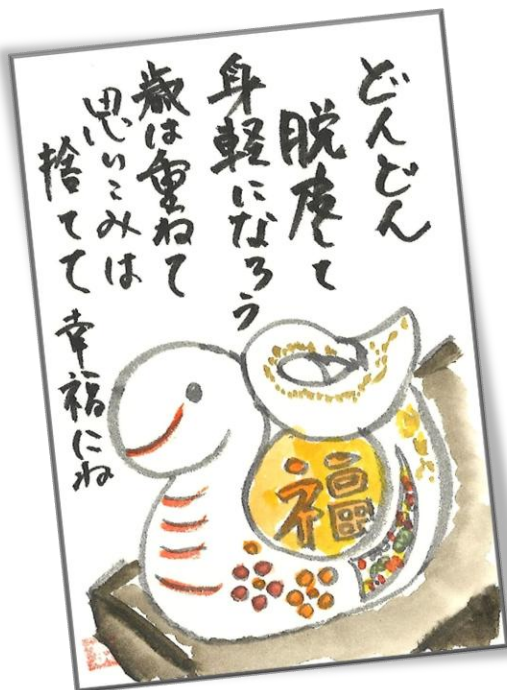 どんどん
脱皮して
身軽になろう
歳は重ねて
思いこみは
捨てて 幸福にね
福